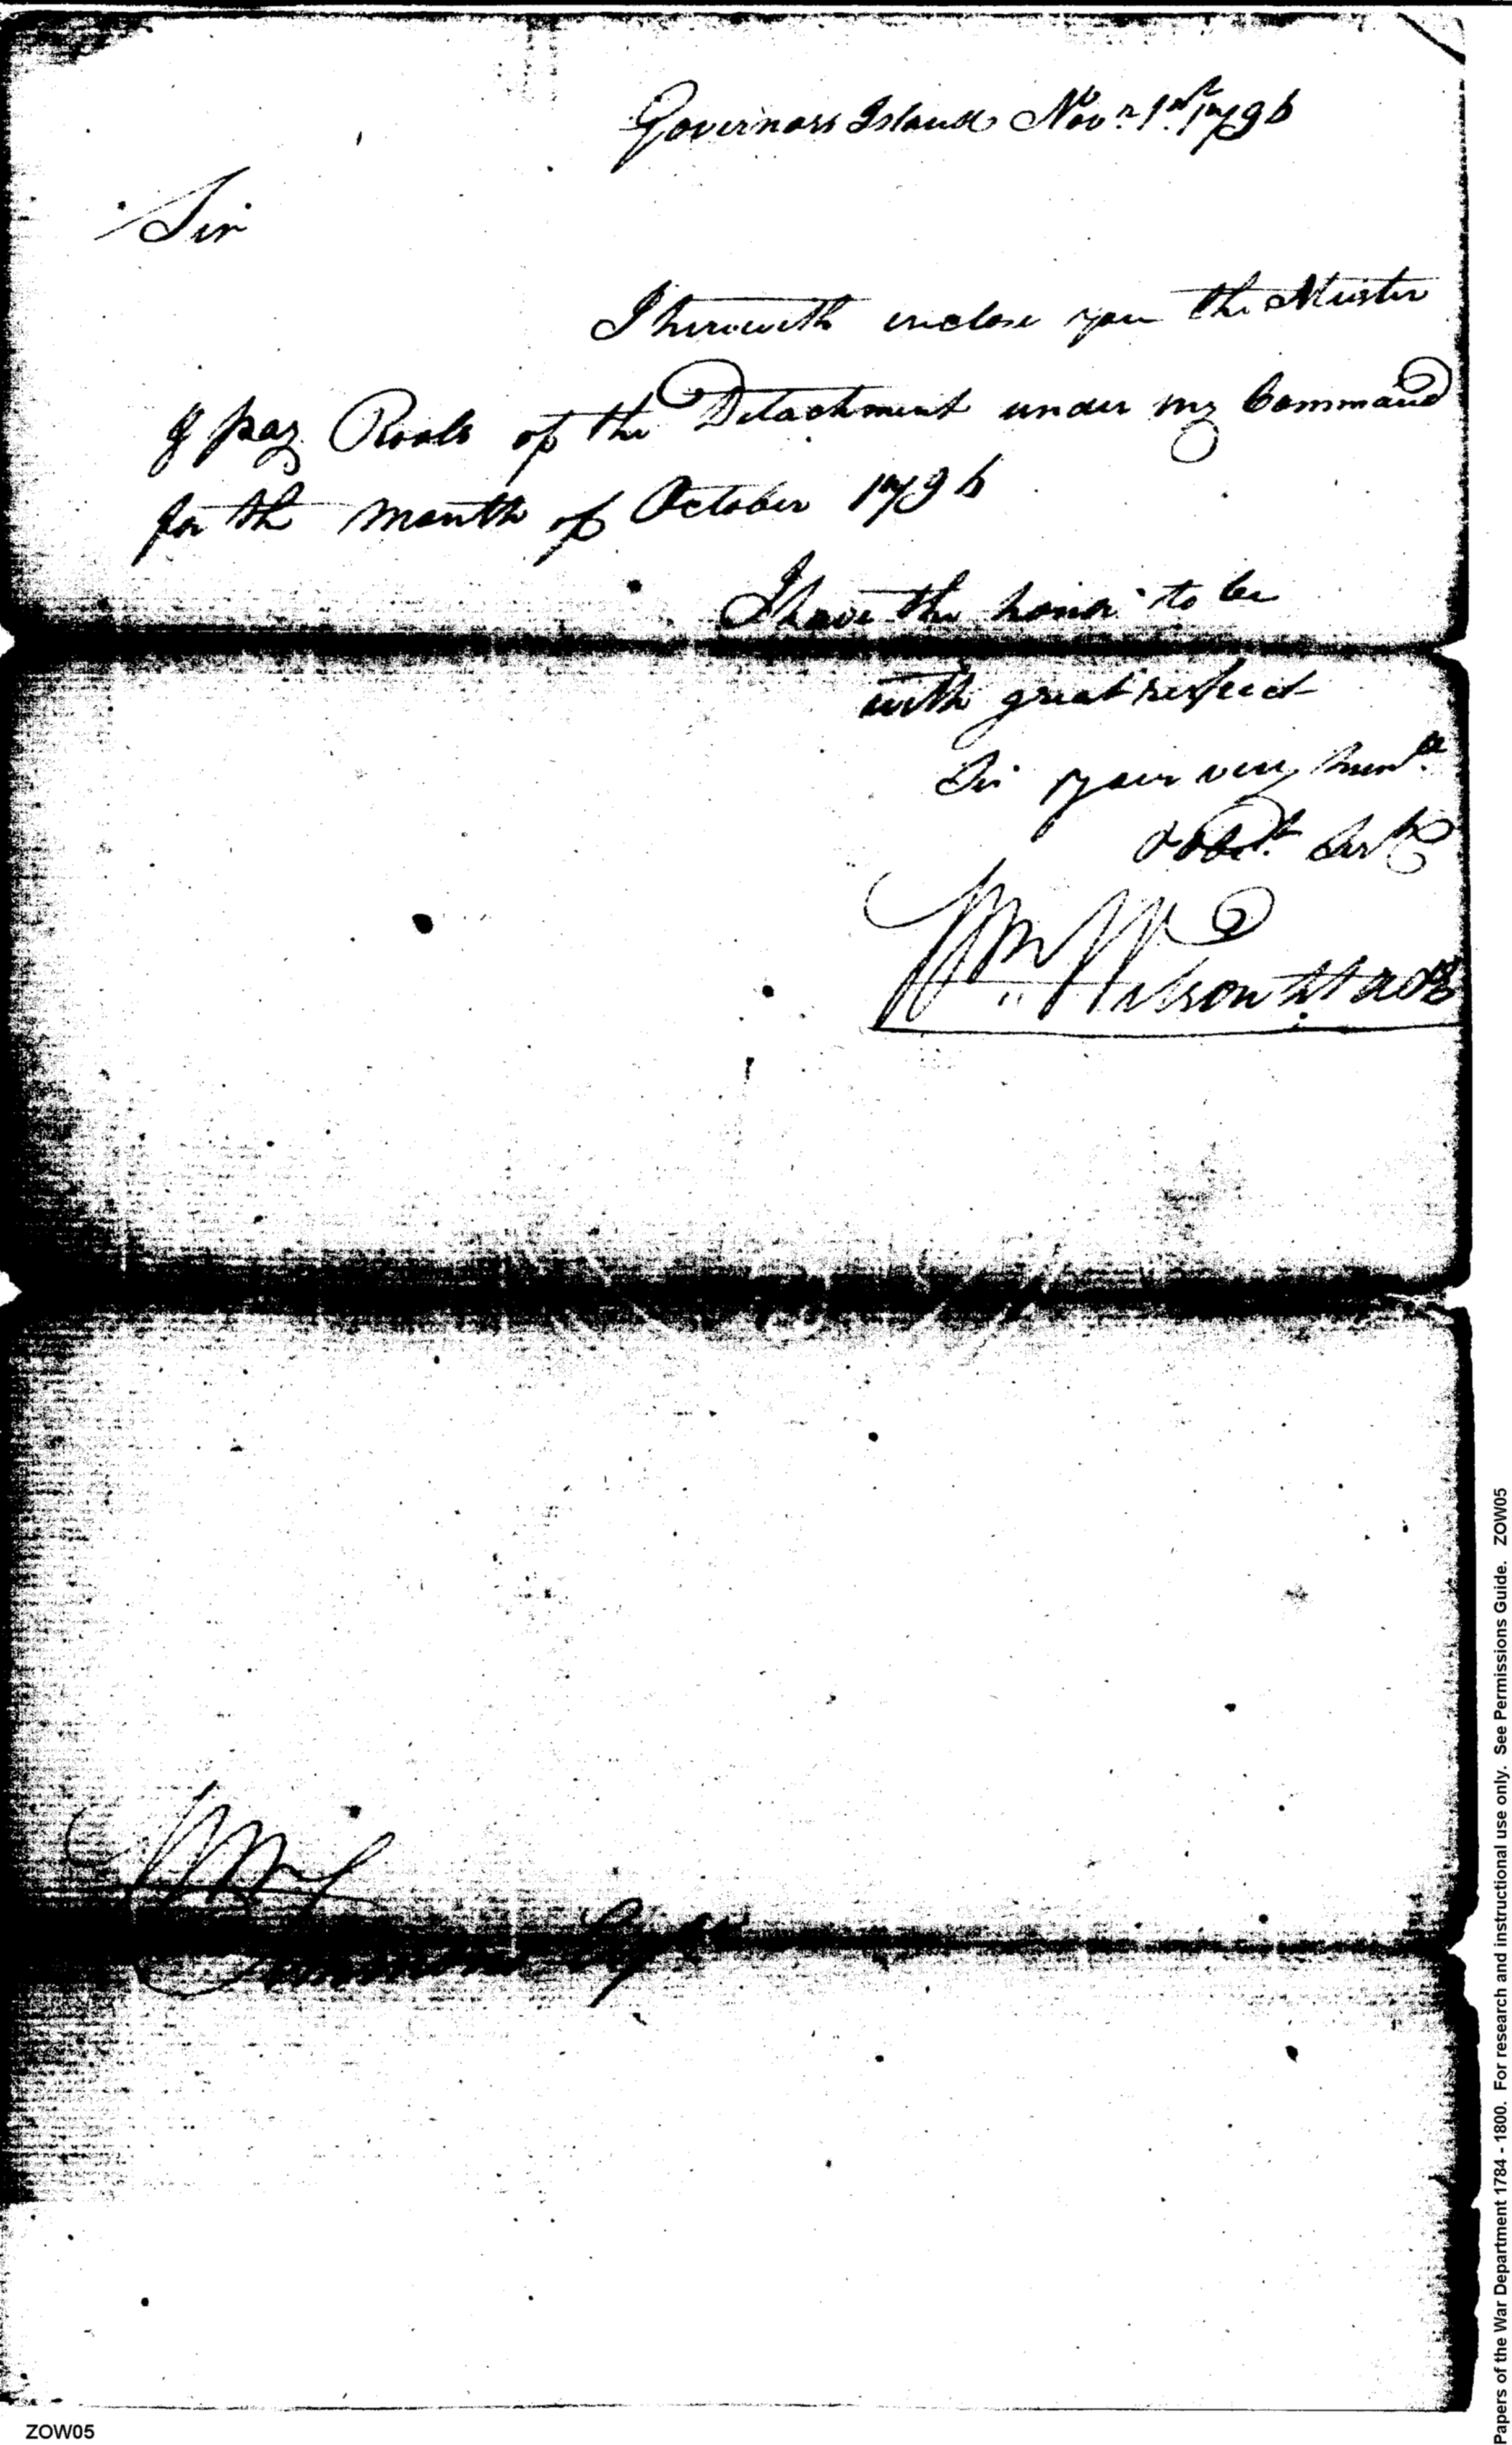 Governors Island Novr. 1st. 1796
Sir
I herewith enclose you the Muster
& pay Roals of the Detachment under my Command
for the Month of October 1796
I have the honor to be
with great respect
Sir your very humle.
obdt. Sert
Wm. Wilson Lt
Wm
Simmons Esqr
ZOW05
Papers of the War Department 1784 - 1800. For research and instructional use only. See Permissions Guide. ZOW05